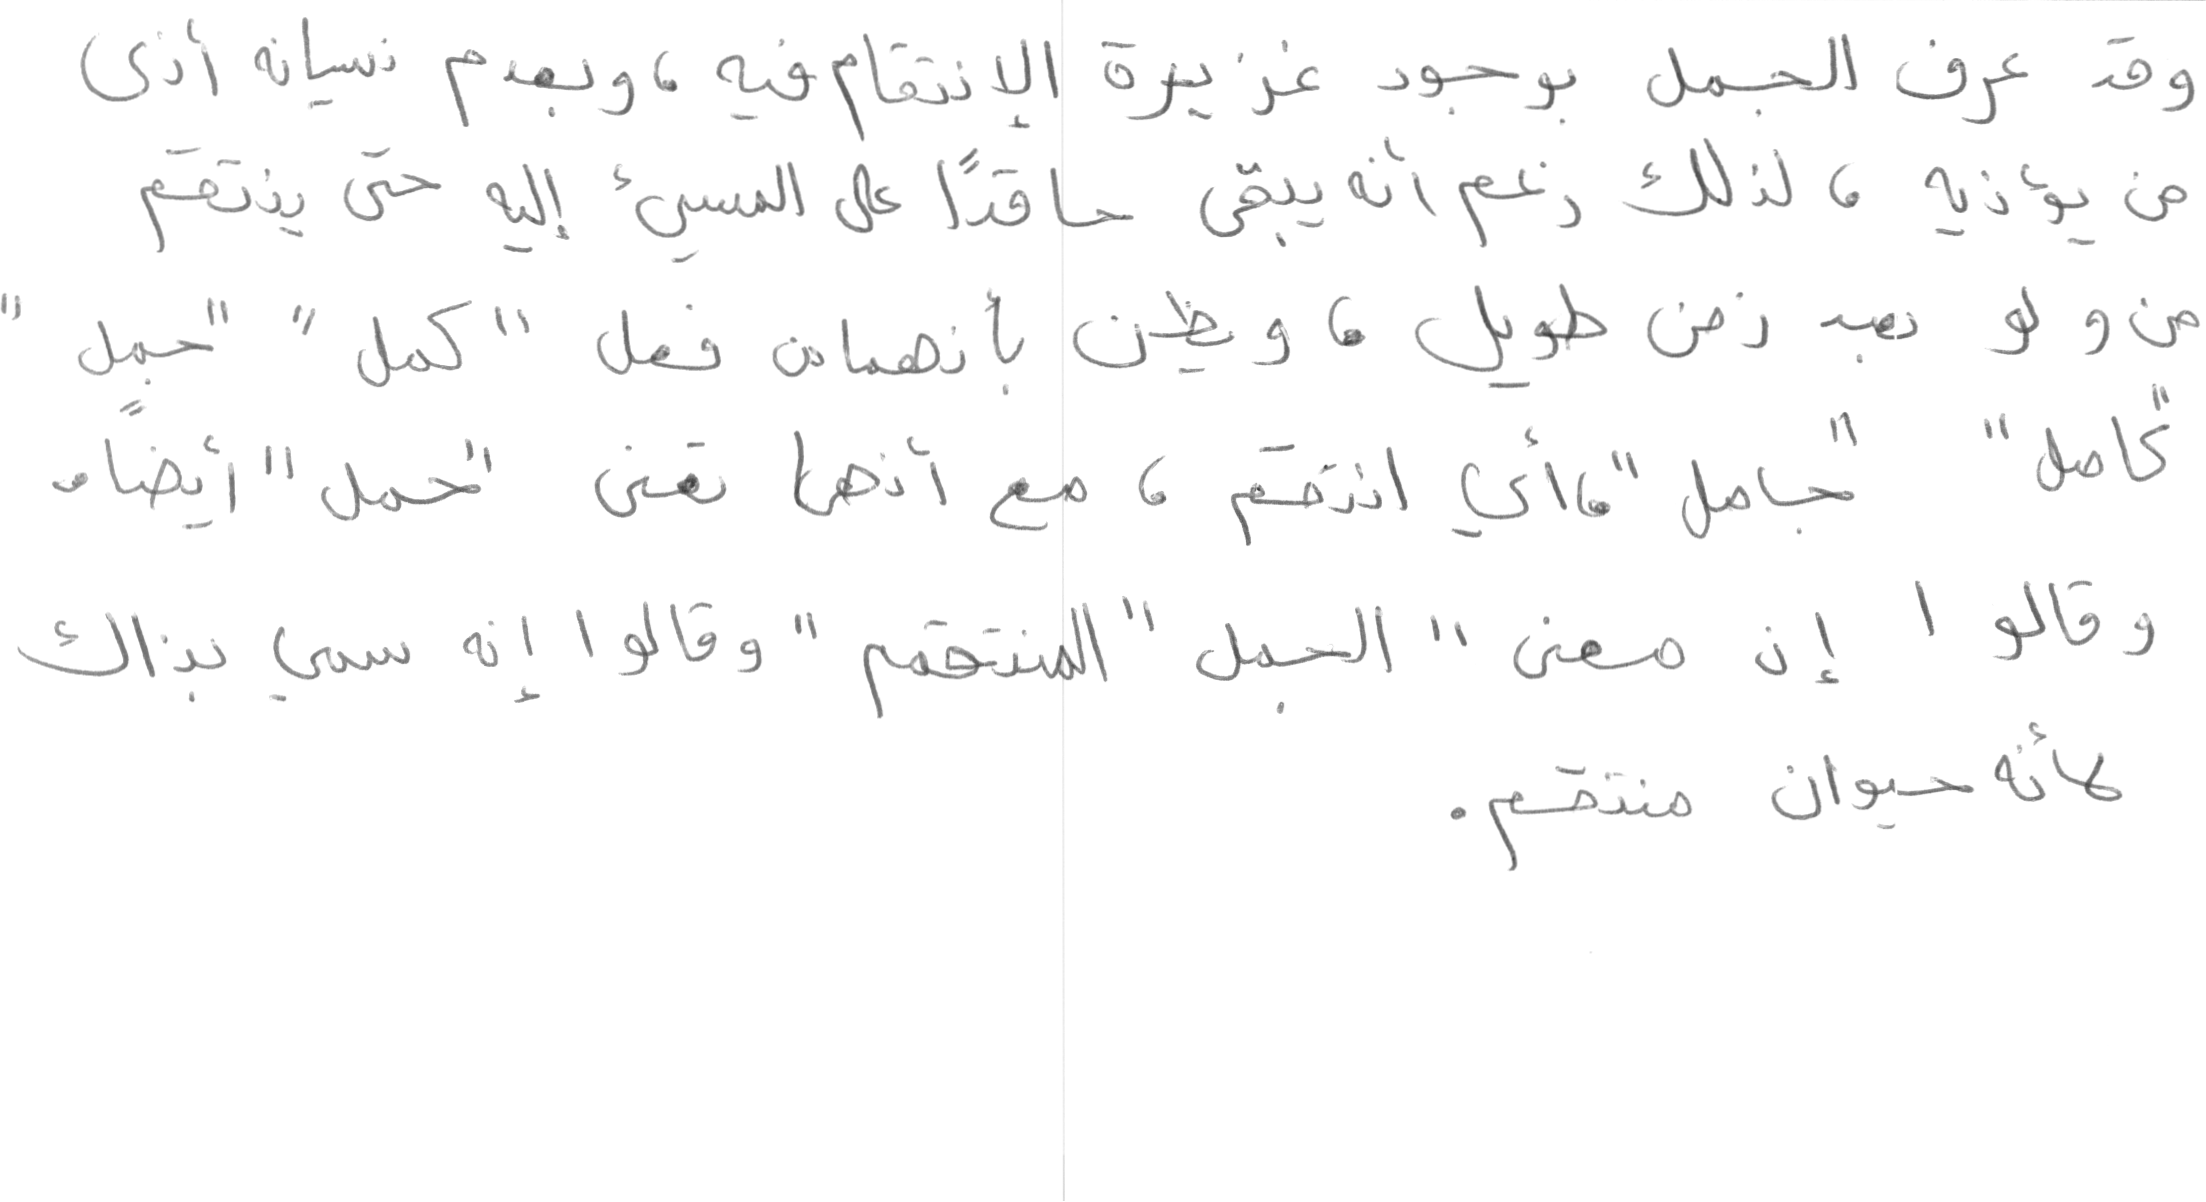 وقد عرف الجمل بوجود غزيرة الإنتقام فيه، وبعدم نسيانه أذى
من يؤذيه، لذلك رغم أنه يبقى حاقدًا على المسيئ إليه حتى ينتقم
من ولو بعد زمن طويل، ويظن بأنهما من فعل "كمل" "جمل"
"كامل" "جامل"، أي انتقم، مع أنها تعنى "حمل" أيضًا.
وقالوا إن معنى "الجمل" "المنتقم" وقالوا إنه سمي بذاك
لأنه حيوان منتقم.